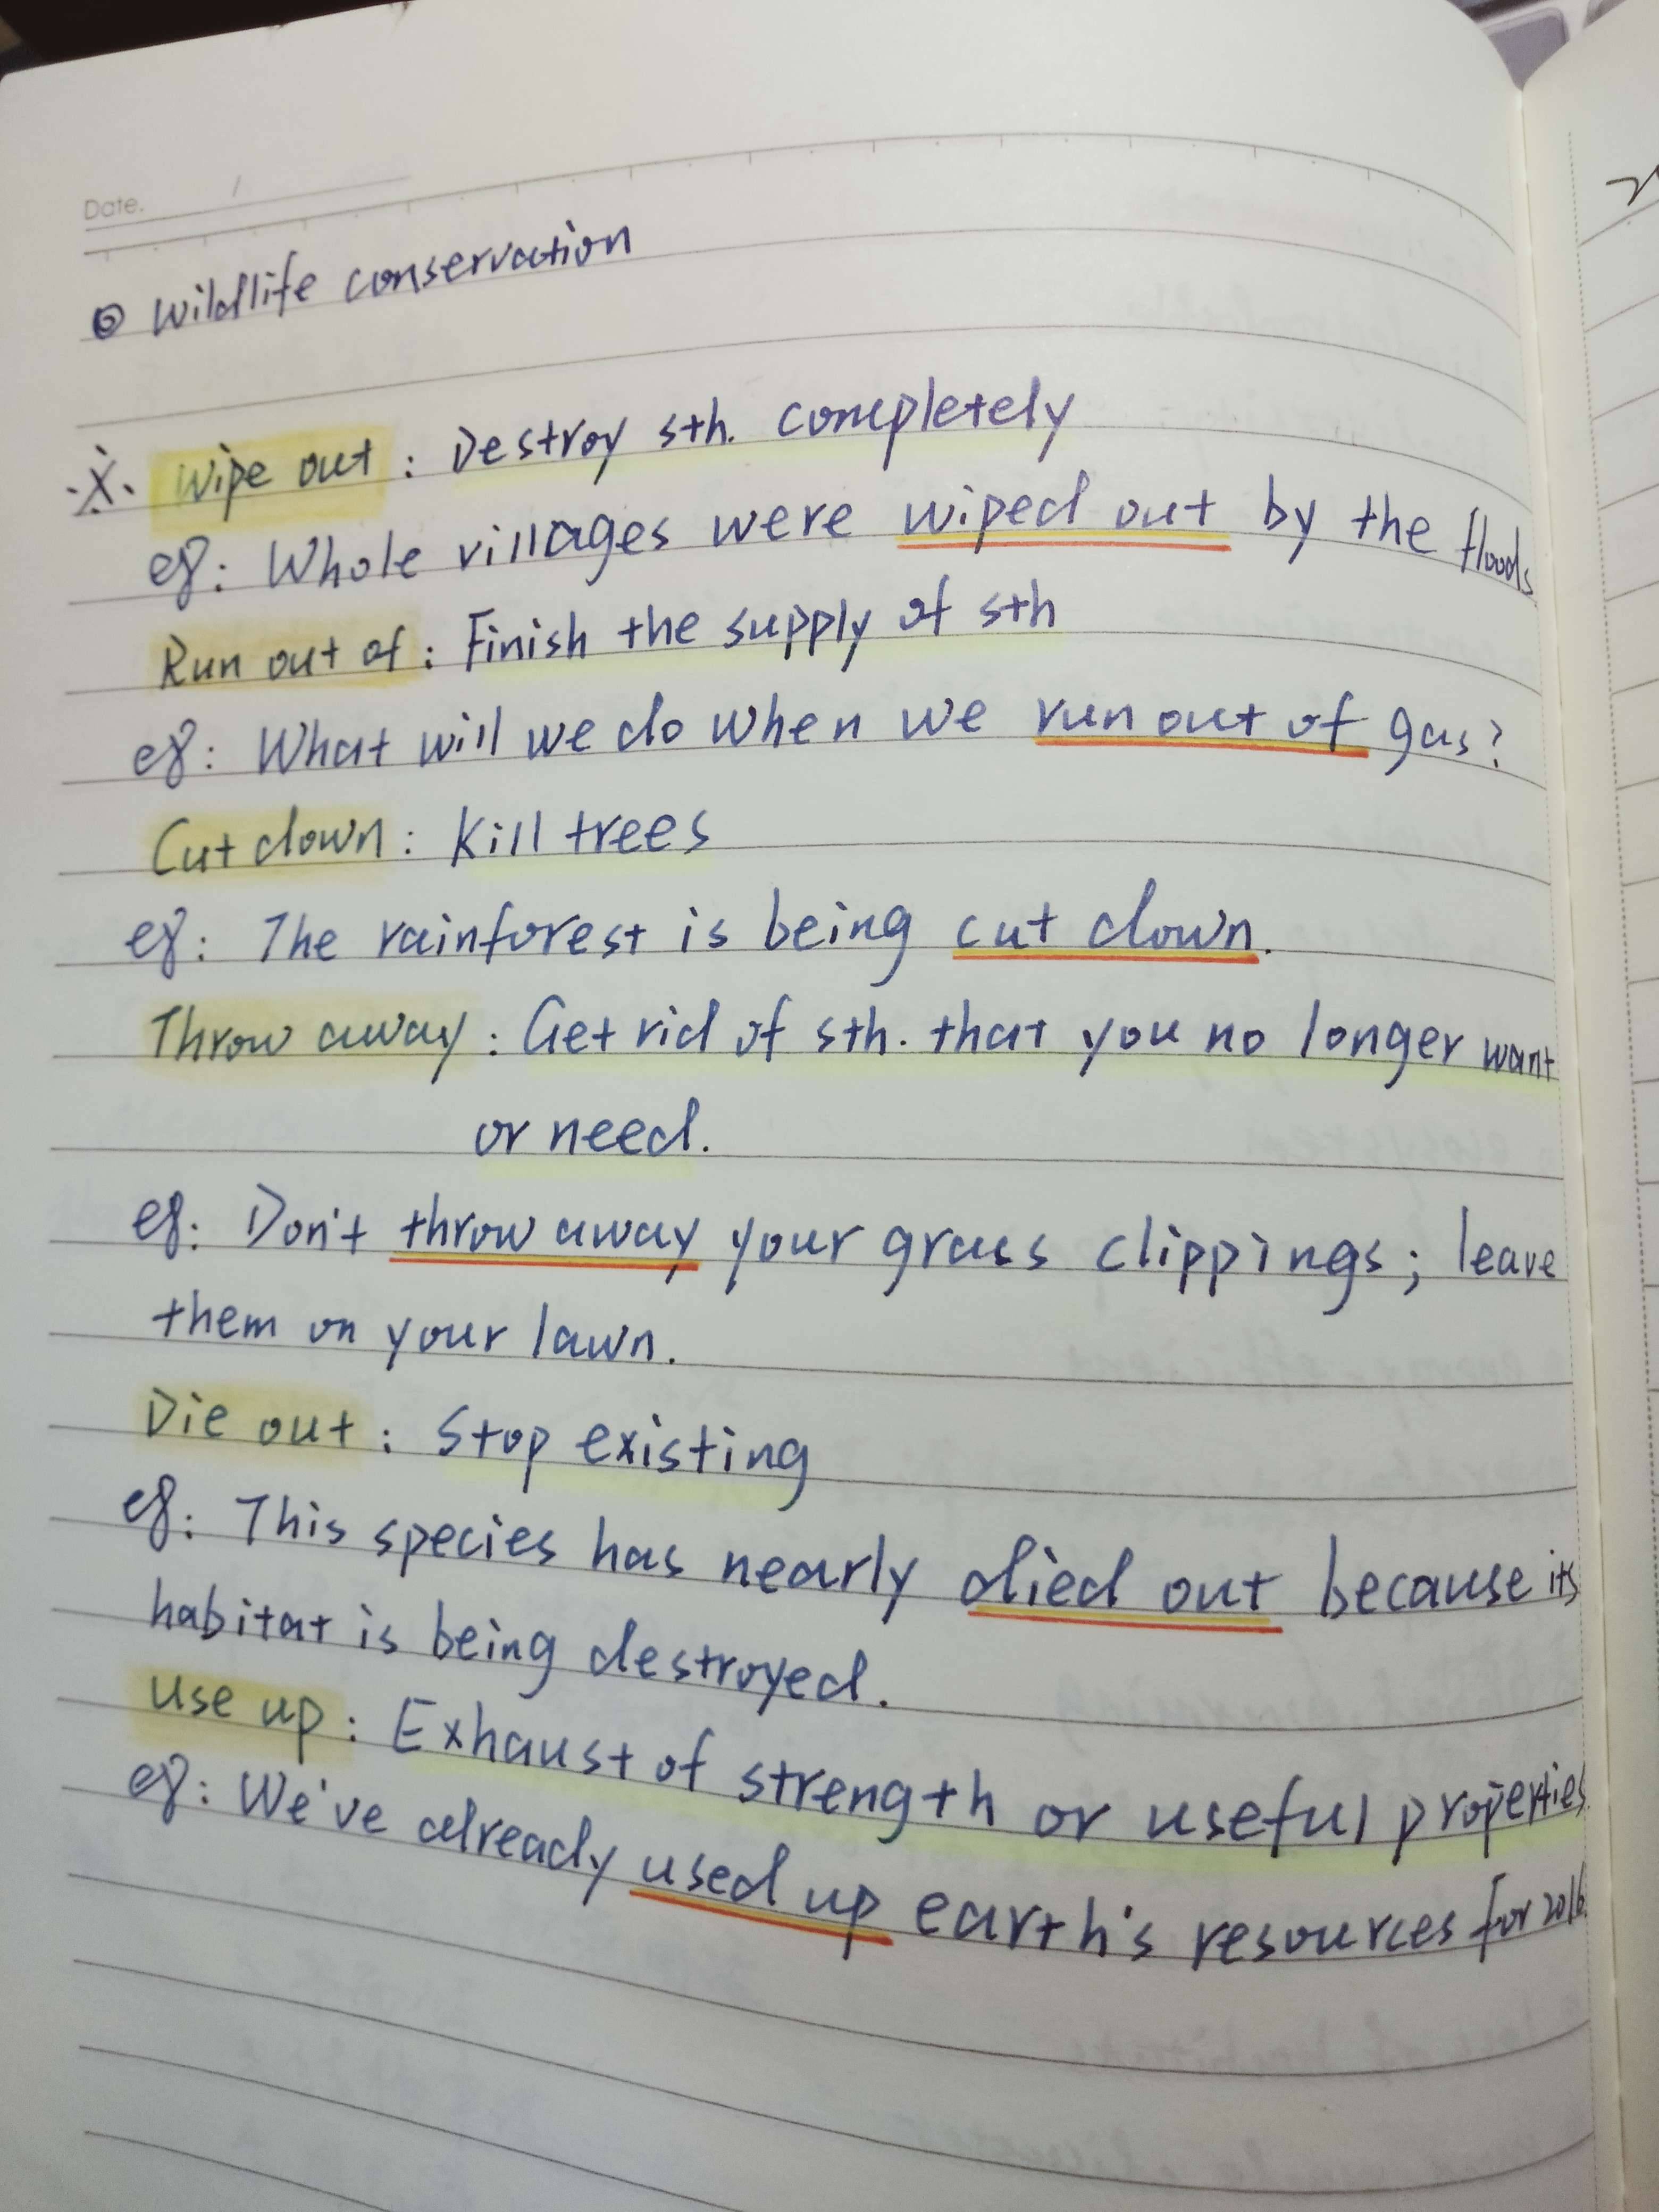 Date.
◎ Wildlife conservation
※ Wipe out : Destroy sth. completely
eg: Whole villages were wiped out by the floods
Run out of : Finish the supply of sth
eg: What will we do when we run out of gas?
Cut down : Kill trees
eg: The rainforest is being cut down.
Throw away : Get rid of sth. that you no longer want
or need.
eg: Don't throw away your grass clippings; leave
them on your lawn.
Die out : Stop existing
eg: This species has nearly died out because its
habitat is being destroyed.
Use up : Exhaust of strength or useful properties.
eg: We've already used up earth's resources for 2016.